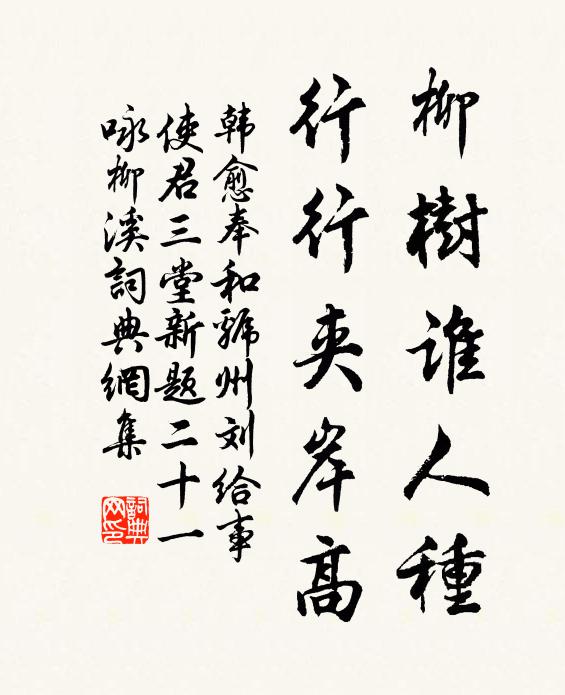 柳樹誰人種
行行夾岸高
韩愈奉和虢州刘给事
使君三堂新题二十一
咏柳溪詞典網集
詞典网印